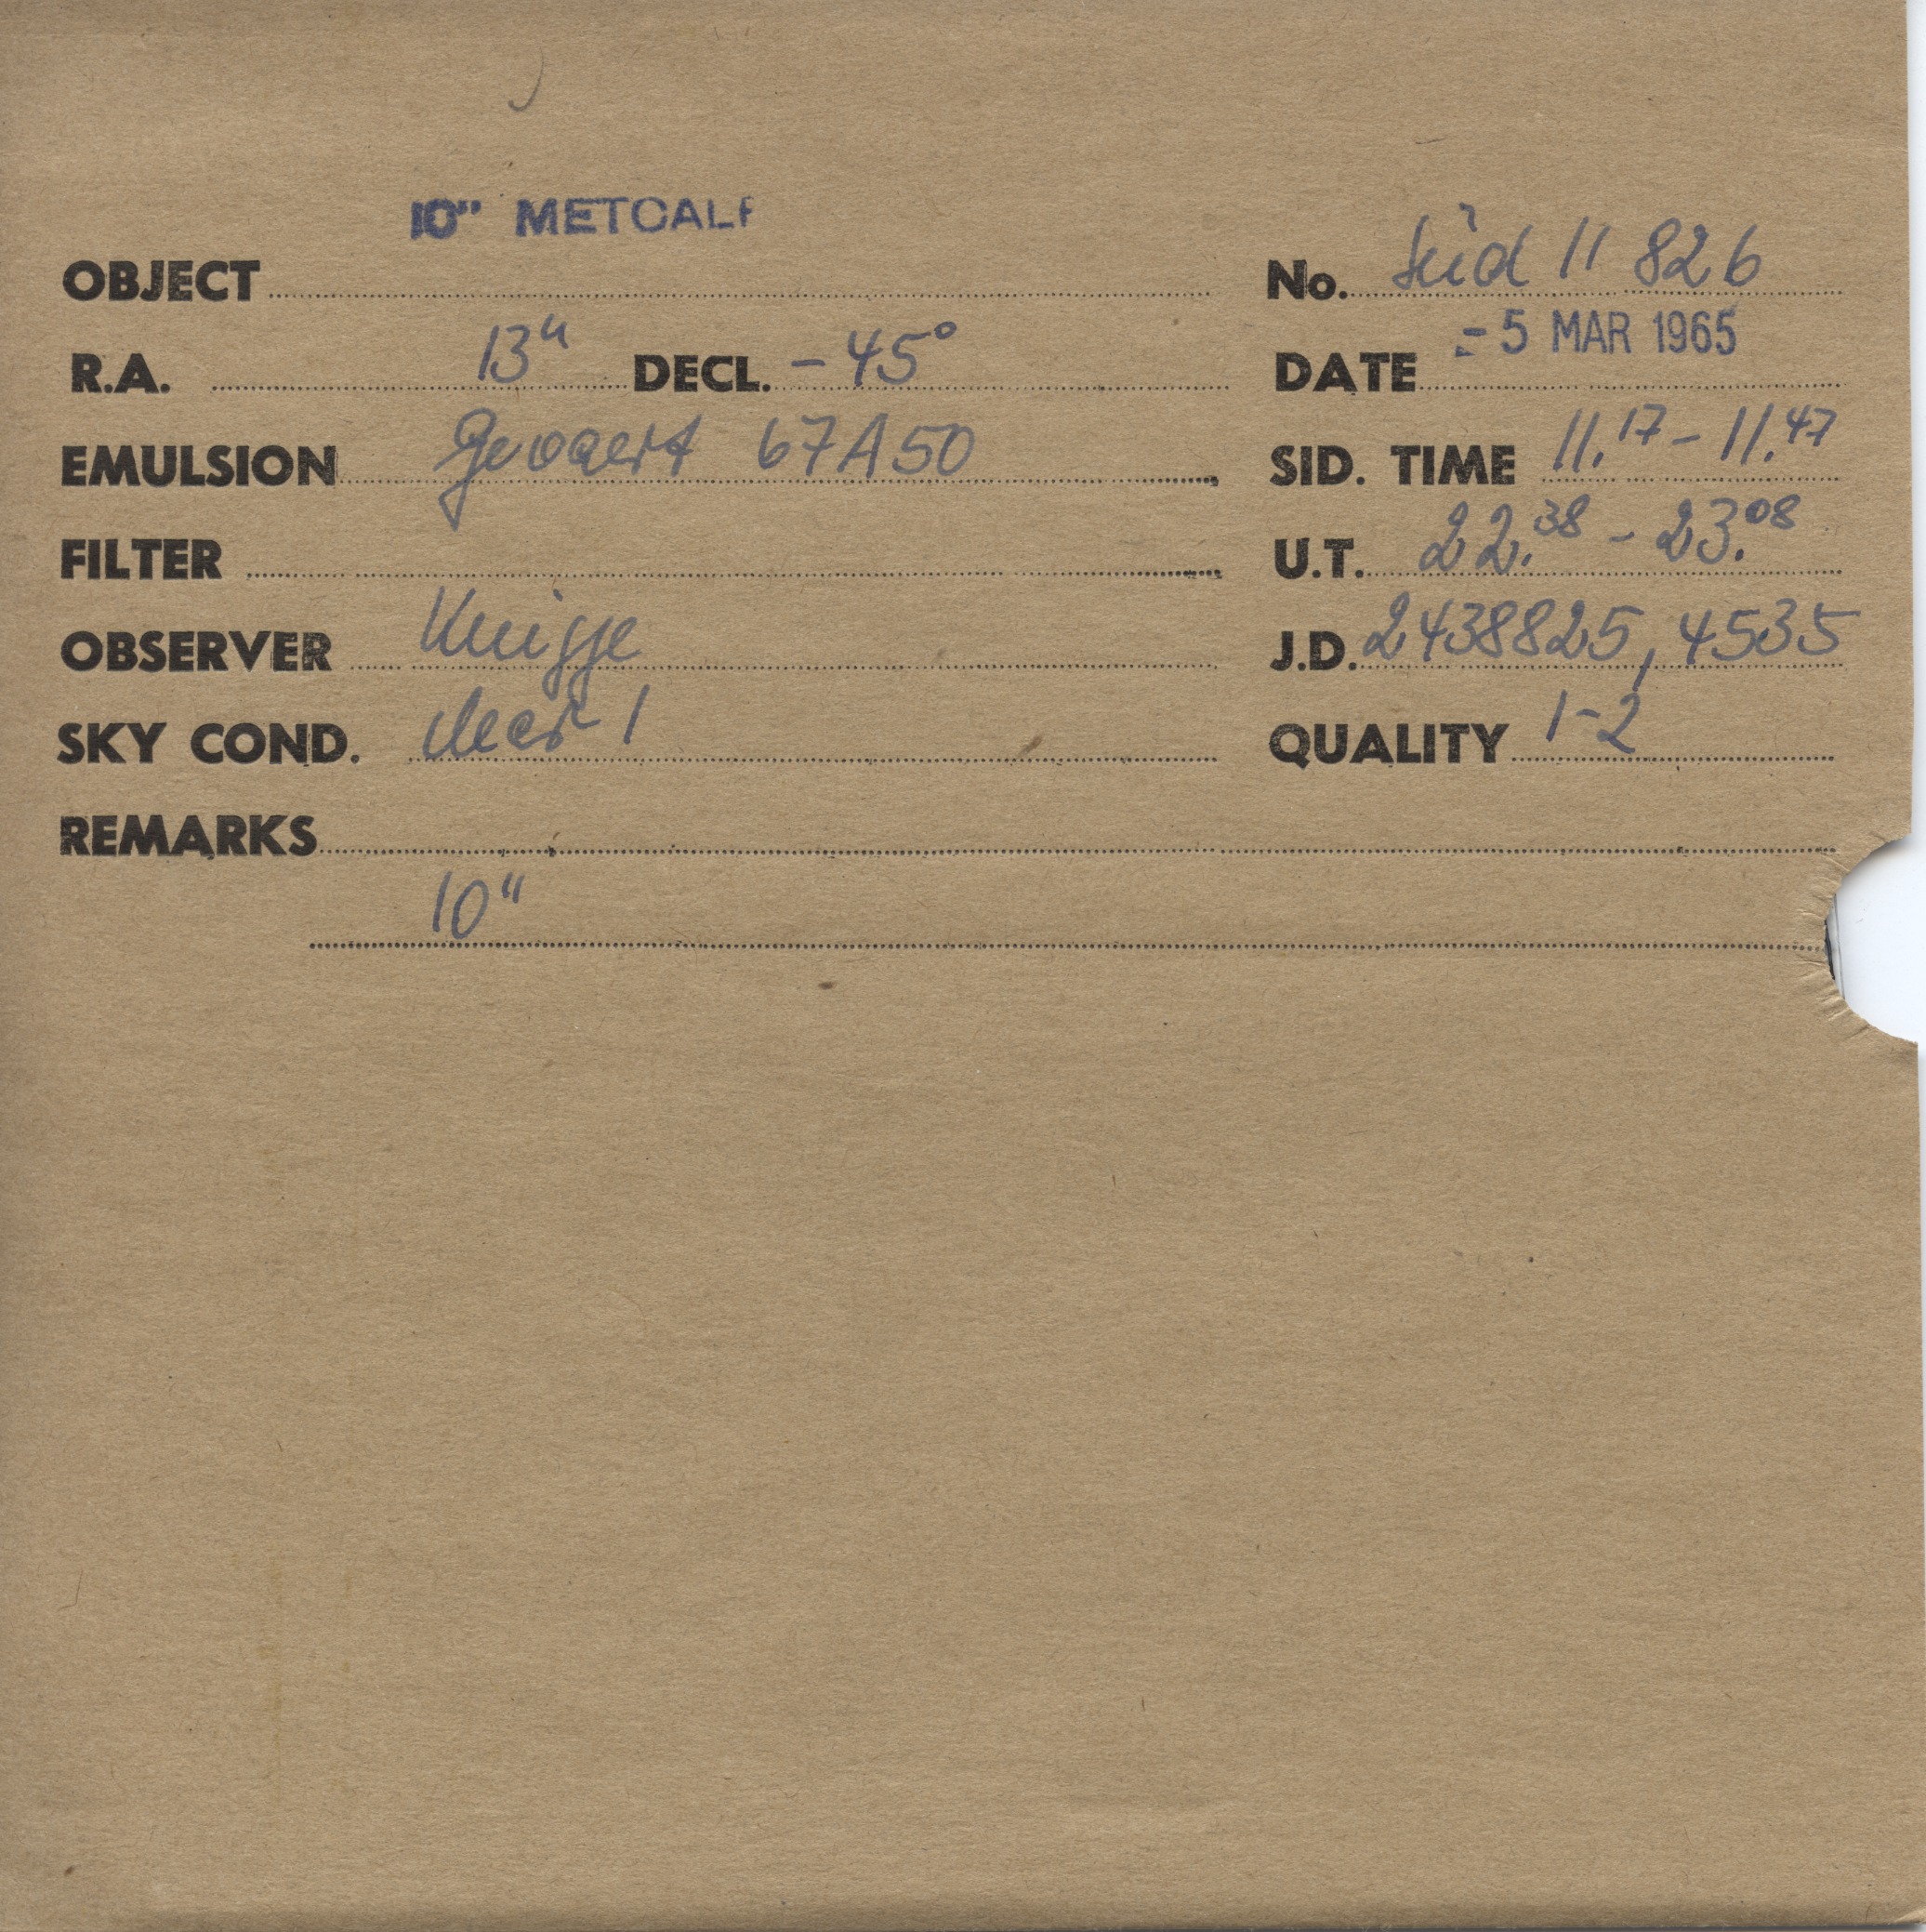 10" METCALF
OBJECT No. Süd 11 826
R.A. 13h DECL. -45° DATE -5 MAR 1965
EMULSION Gevaert 67A50 SID. TIME 11.17 - 11.47
FILTER U.T. 22.38 - 23.08
OBSERVER Knigge J.D. 2438825,4535
SKY COND. clear 1 QUALITY 1-2
REMARKS
10"